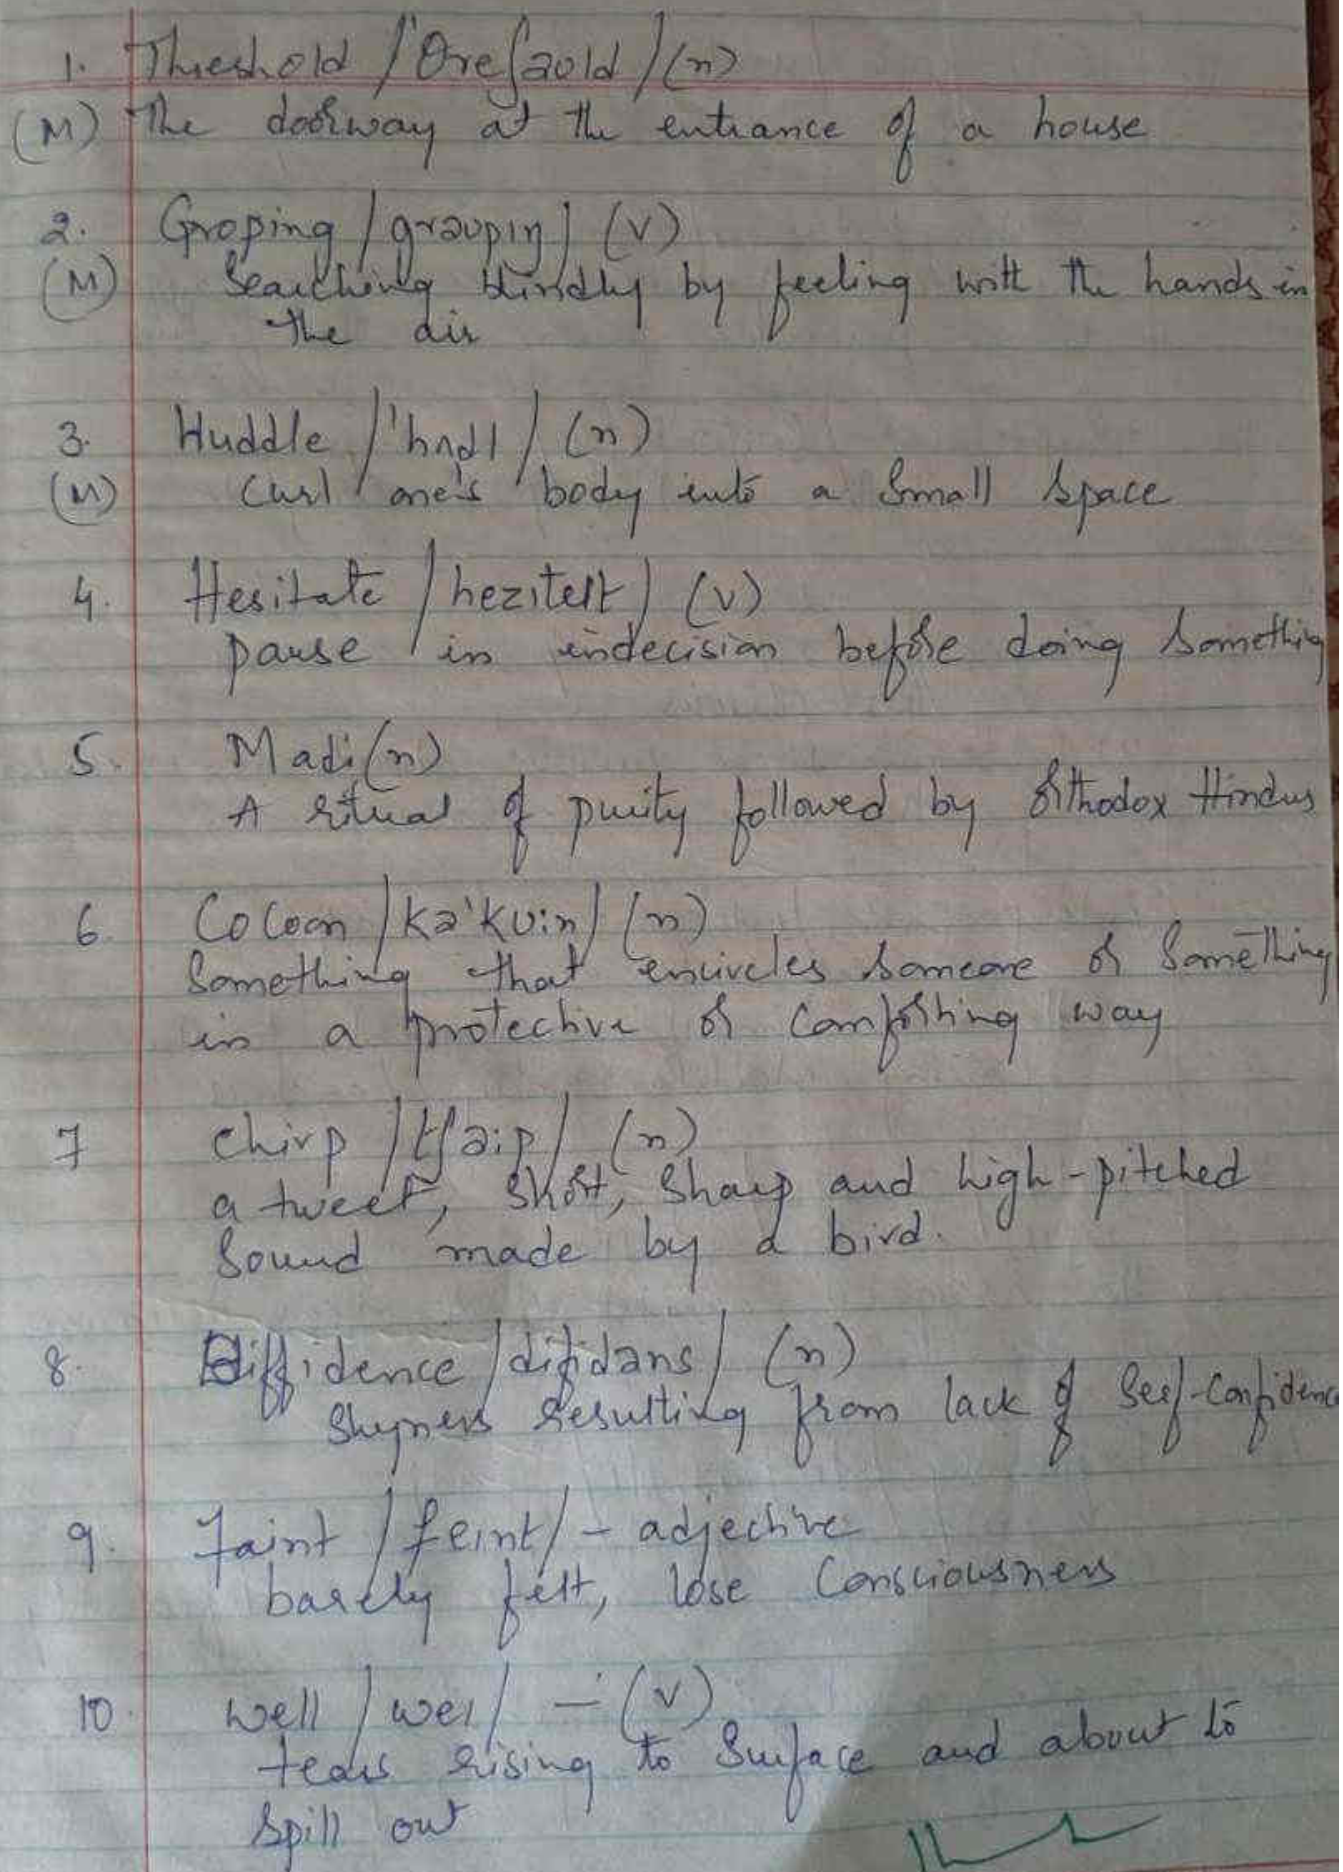 1. Threshold /'θreʃəʊld/ (n)
(M) The doorway at the entrance of a house
2. Groping /grəʊpɪŋ/ (v)
(M) Searching blindly by feeling with the hands in
the air
3. Huddle /'hʌdl/ (n)
(M) Curl one's body into a small space
4. Hesitate /hezɪteɪt/ (v)
pause in indecision before doing something
5. Madi (n)
A ritual of purity followed by Orthodox Hindus
6. Cocoon /kə'ku:n/ (n)
Something that encircles someone or something
in a protective or comforting way
7 Chirp /tʃə:p/ (n)
a tweet, short, sharp and high-pitched
sound made by a bird.
8. Diffidence /difidəns/ (n)
Shyness resulting from lack of self-confidence
9. Faint /feint/ - adjective
barely felt, lose consciousness
10. Well /wel/ - (v)
tears rising to surface and about to
spill out